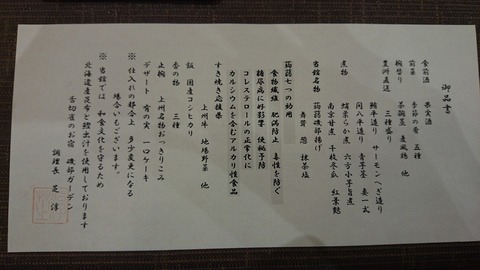 御品書
食前酒 果実酒
前菜 季節の肴 五種
椀替り 茶碗蒸 麦風鶏 他
豊洲直送 三種盛り
鮪平造り サーモンへぎ造り
間八平造り 青芋茎 妻一式
煮物 娟菜らか煮 六方小芋旨煮
南京甘煮 千枚冬瓜 紅葉麩
当館名物 蒟蒻磯部揚げ
青唐 酢 抹茶塩
蒟蒻七つの効用
食物繊維 肥満防止 毒性を防ぐ
糖尿病に好影響 便秘予防
コレステロールの正常化に
カルシウムを含むアルカリ性食品
すき焼き応援鍋
上州牛 地場野菜 他
飯 国産コシヒカリ
香の物 三種
止椀 上州名物おっきりこみ
デザート 有の実 一口ケーキ
※ 仕入れの都合上 多少変更になる
場合もございます。
※ 当館では 和食文化を守るため
北海道産昆布と鰹出汁を使用しております
舌切雀のお宿 磯部ガーデン
調理長 芝 淳